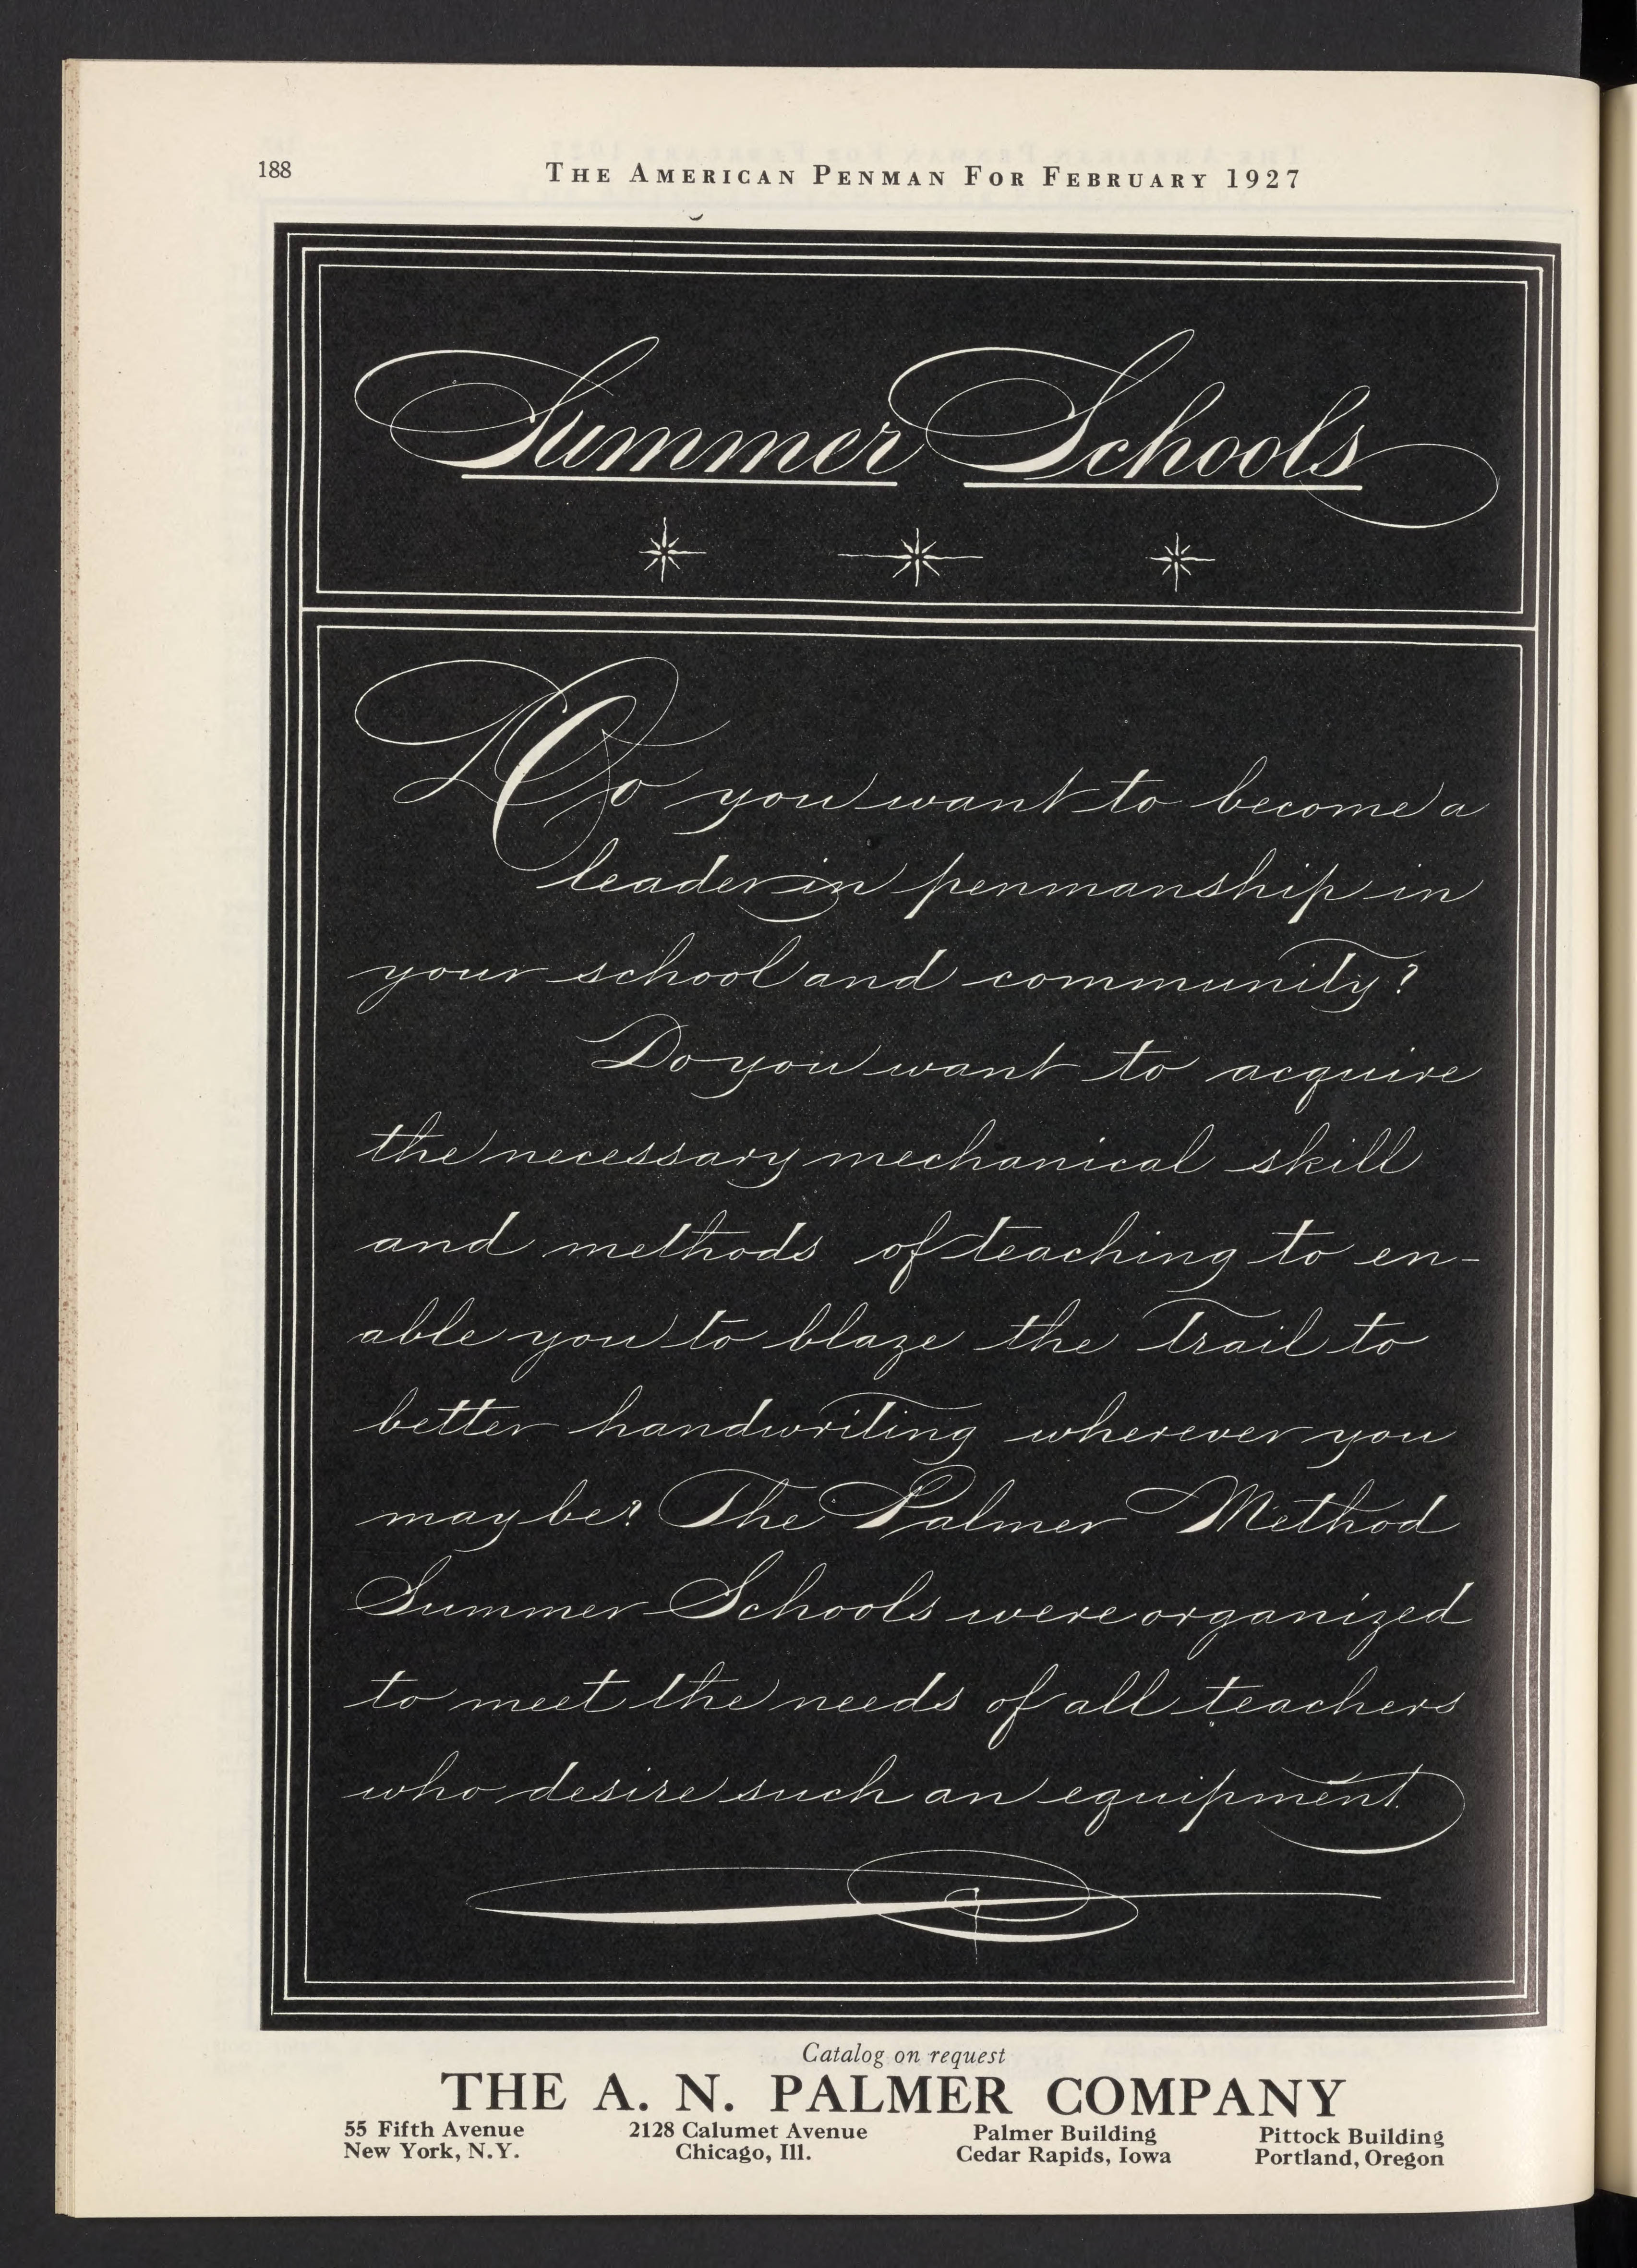 188
THE AMERICAN PENMAN FOR FEBRUARY 1927
Summer Schools
Do you want to become a
leader in penmanship in
your school and community?
Do you want to acquire
the necessary mechanical skill
and methods of teaching to en-
able you to blaze the trail to
better handwriting wherever you
may be? The Palmer Method
Summer Schools were organized
to meet the needs of all teachers
who desire such an equipment.
Catalog on request
THE A. N. PALMER COMPANY
55 Fifth Avenue 2128 Calumet Avenue Palmer Building Pittock Building
New York, N.Y. Chicago, Ill. Cedar Rapids, Iowa Portland, Oregon